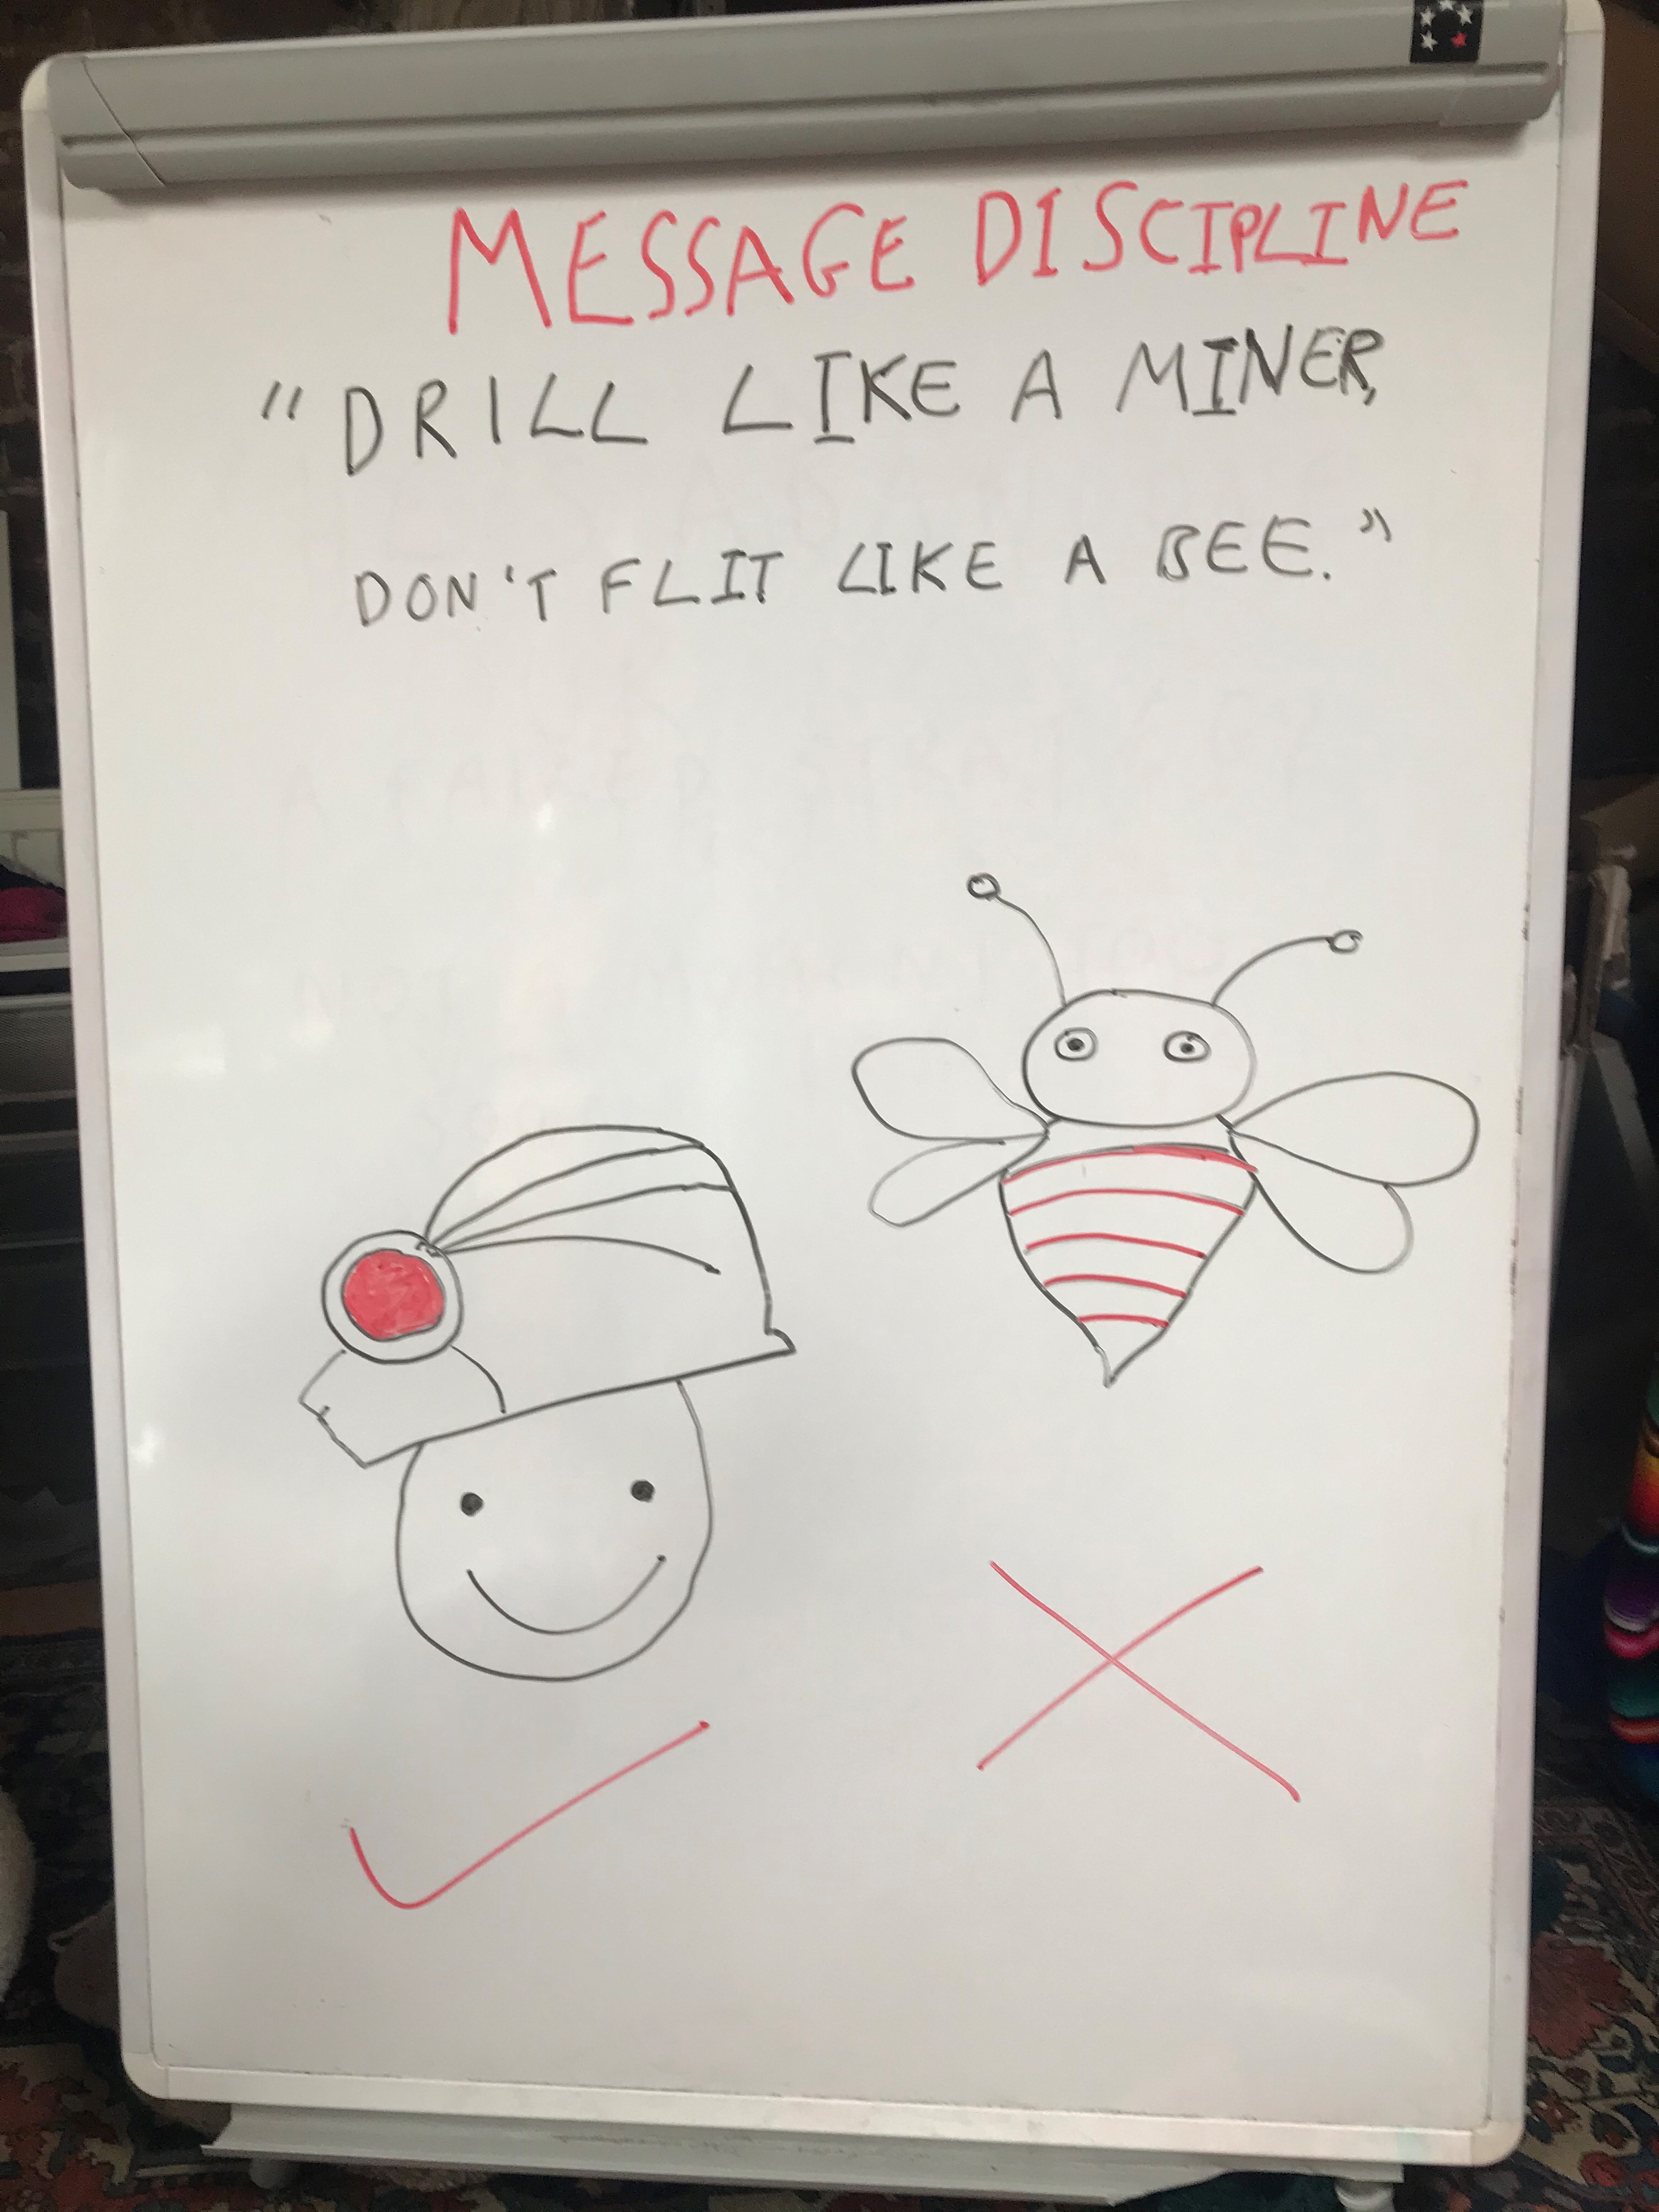 MESSAGE DISCIPLINE
"DRILL LIKE A MINER,
DON'T FLIT LIKE A BEE."